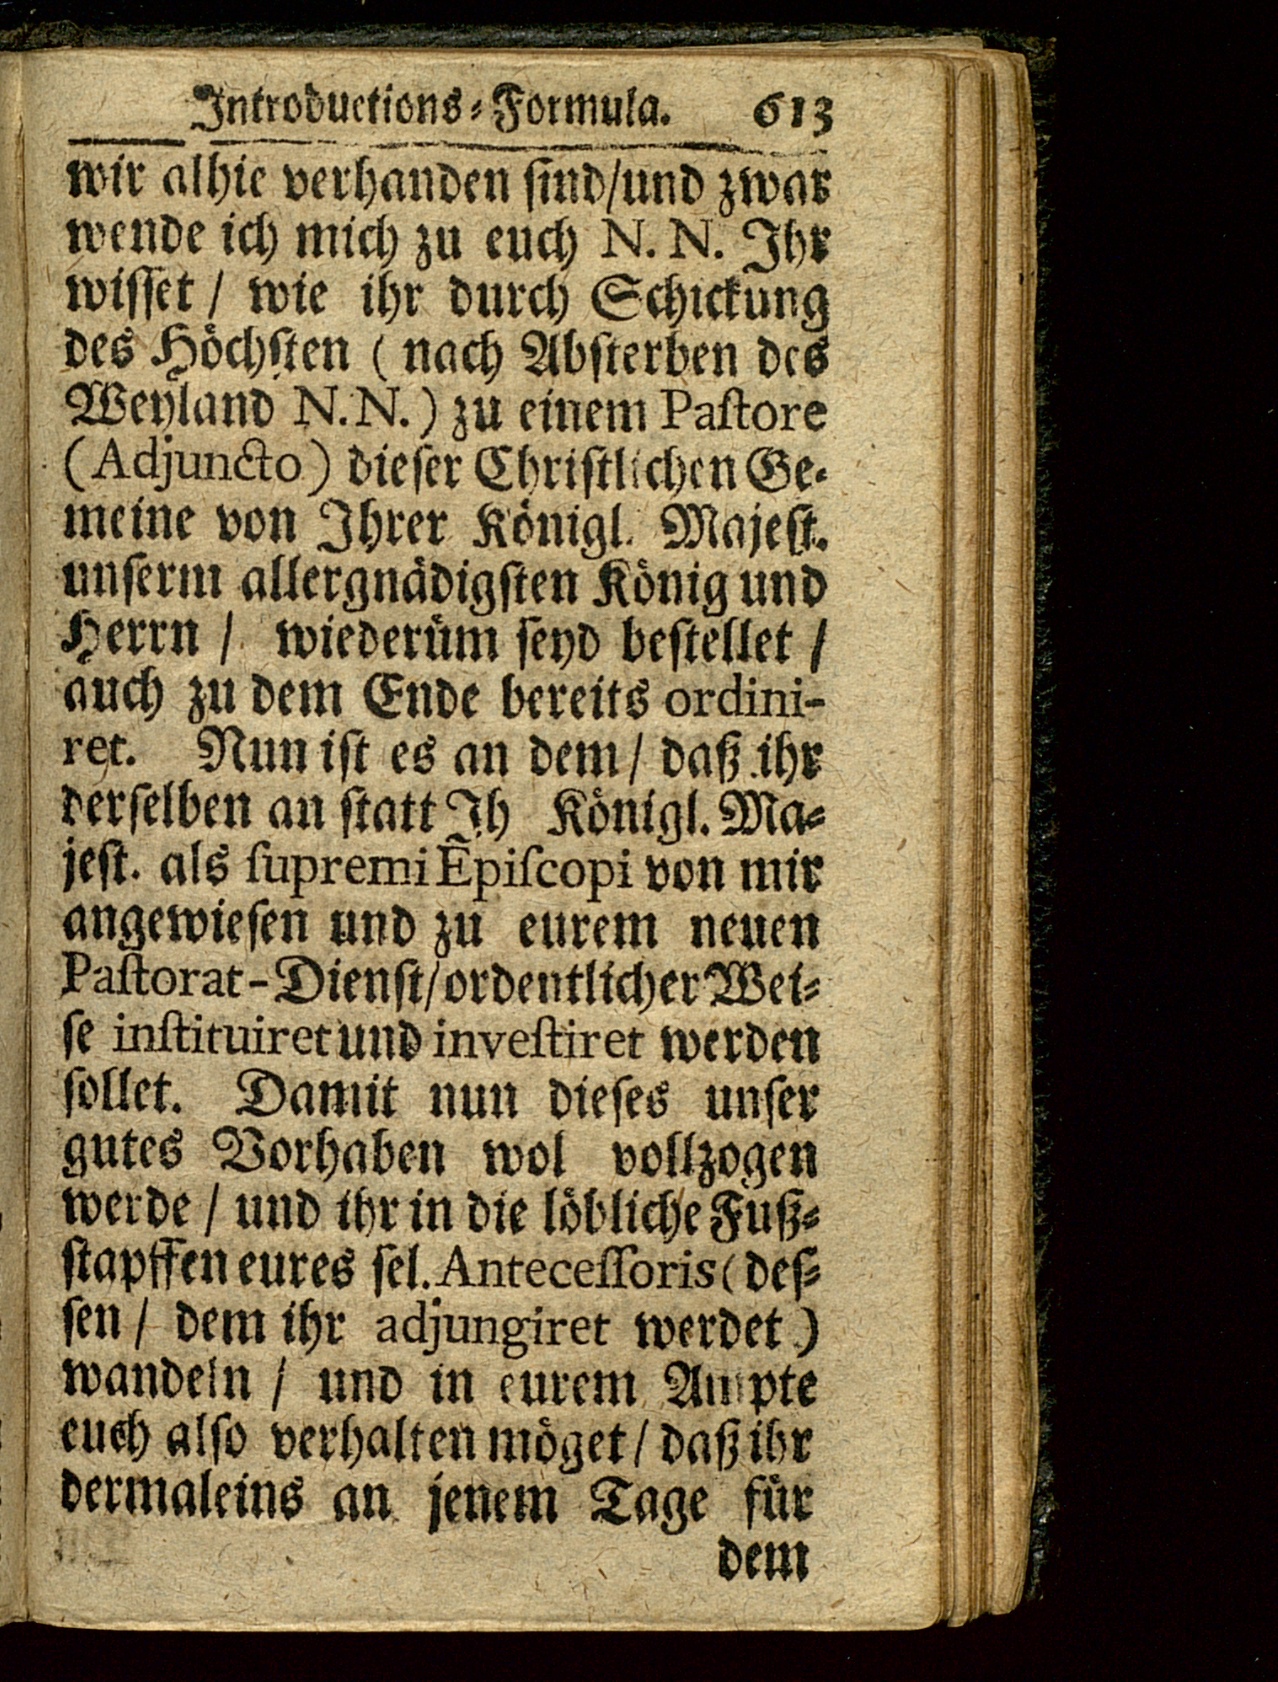 Introductions-Formula. 613
wir alhie verhanden sind/und zwar
wende ich mich zu euch N. N. Ihr
wisset / wie ihr durch Schickung
des Höchsten ( nach Absterben des
Weyland N. N. ) zu einem Pastore
( Adjuncto ) dieser Christlichen Ge-
meine von Ihrer Königl. Majest.
unserm allergnädigsten König und
Herrn / wiederüm seyd bestellet /
auch zu dem Ende bereits ordini-
ret. Nun ist es an dem / daß ihr
derselben an statt Ih Königl. Ma-
jest. als supremi Episcopi von mir
angewiesen und zu eurem neuen
Pastorat-Dienst/ordentlicher Wei-
se instituiret und investiret werden
sollet. Damit nun dieses unser
gutes Vorhaben wol vollzogen
werde / und ihr in die löbliche Fuß-
stapffen eures sel. Antecessoris ( des-
sen / dem ihr adjungiret werdet )
wandeln / und in eurem Ampte
euch also verhalten möget / daß ihr
dermaleins an jenem Tage für
dem